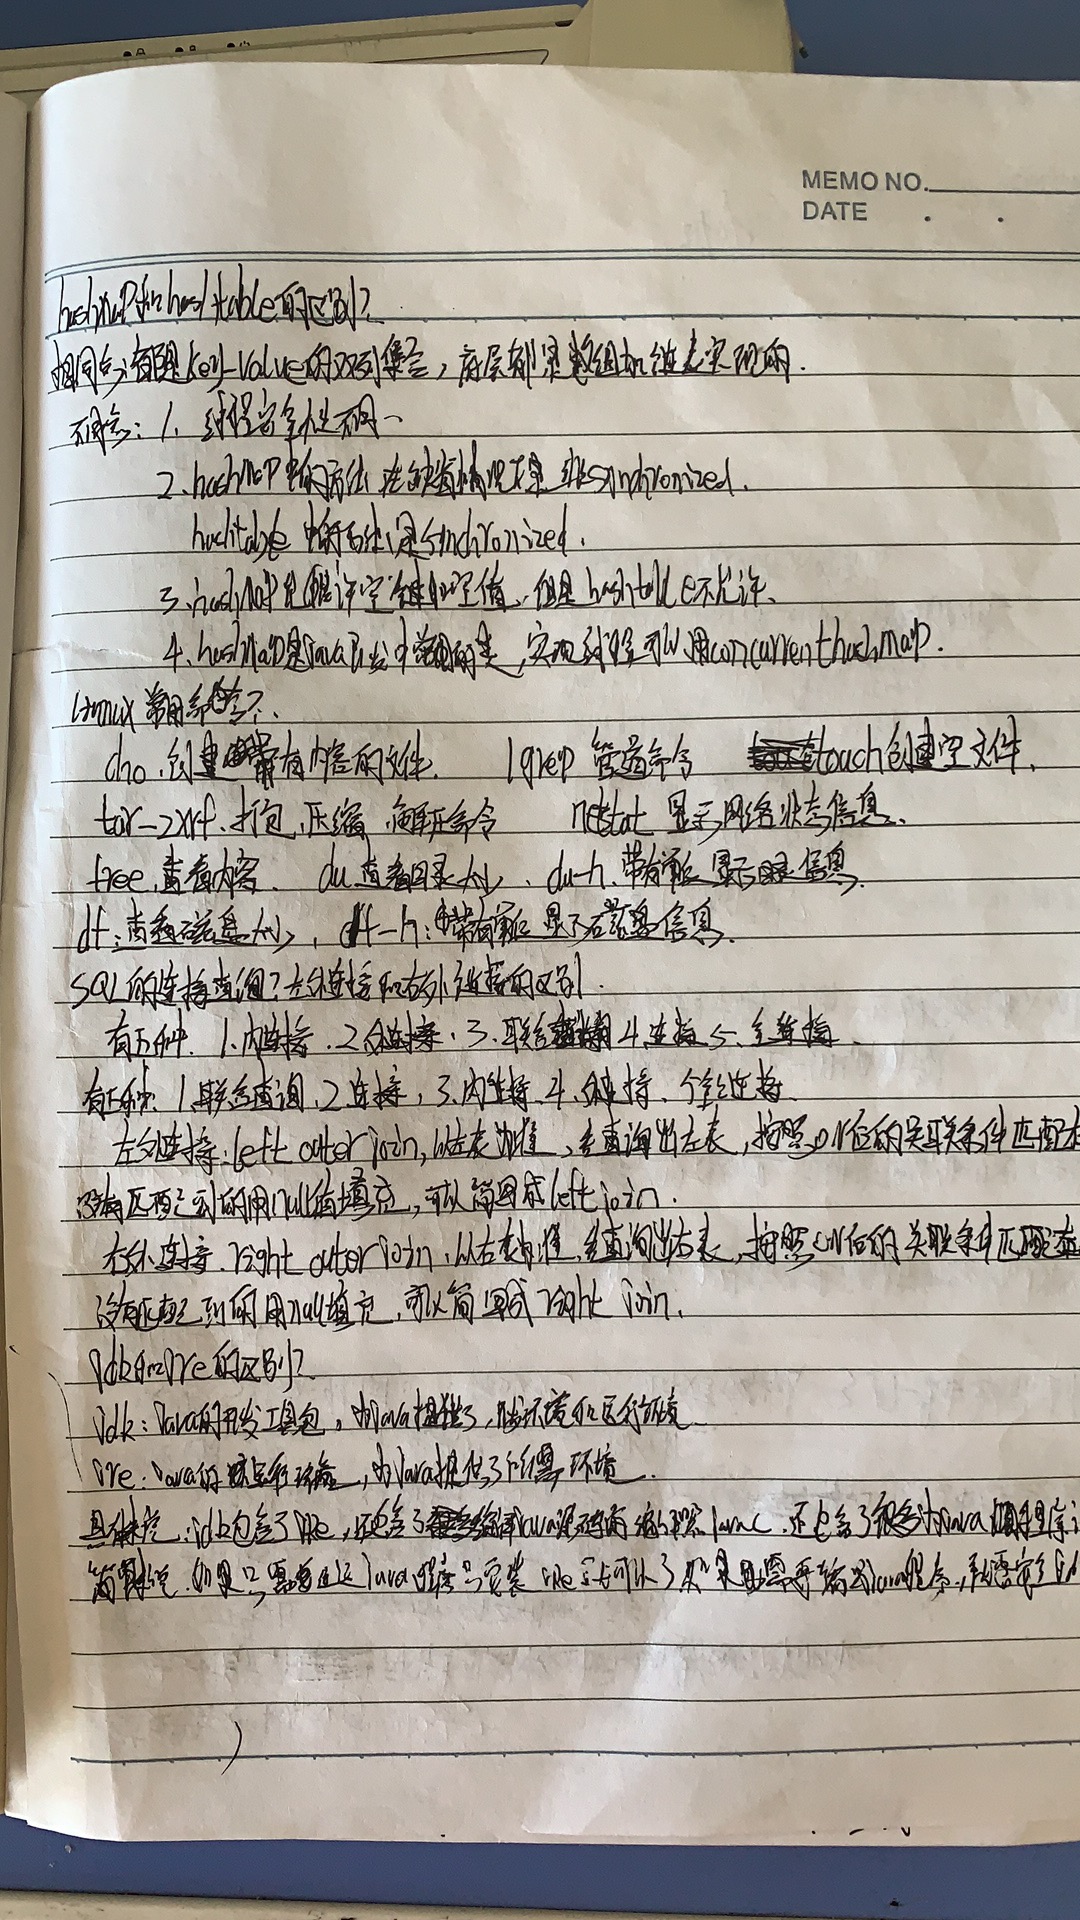 MEMO NO.
DATE . .
hashMap和hashtable的区别?
相同点:都是key-value的双列集合,底层都是数组加链表实现的.
不同点: 1. 线程安全性不同
2.hashMap中的方法在缺省情况下是非synchronized.
hashtable中的方法是synchronized.
3.hashMap允许空键和空值,但是hashtable不允许.
4.hashMap是Java开发中常用的类,实现线程可以用concurrenthashMap.
Linux常用命令?
echo.创建带有内容的文件. |grep 管道命令 touch创建空文件.
tar-zxvf.打包,压缩,解压命令 netstat 显示网络状态信息.
tree.查看内容. du.查看目录大小. du-h.带有单位显示目录信息.
df:查看磁盘大小, df-h:带有单位显示磁盘信息.
SQL的连接查询?左外连接和右外连接的区别.
有五种. 1.内连接.2外连接.3.联合 4.连接 5.全连接.
有五种: 1.联合查询.2连接,3.内连接.4.外连接. 全连接.
左外连接:left outer join,以左表为准,查询出左表,按照on后的关联条件匹配右
没有匹配到的用null值填充,可以简写成left join.
右外连接.right outer join.以右表为准,查询出右表,按照on后的关联条件匹配左
没有匹配到的用null填充,可以简写成right join.
jdk和jre的区别?
jdk:Java的开发工具包,为Java提供了开发环境和运行环境
jre:Java的运行环境,为Java提供了所需环境.
具体来说:jdk包含了jre,还包含了 Java源码的编译器Javac.还包含了很多Java程序
简单来说.如果只需要运行Java程序只安装jre就可以了 如果需要编写Java程序,